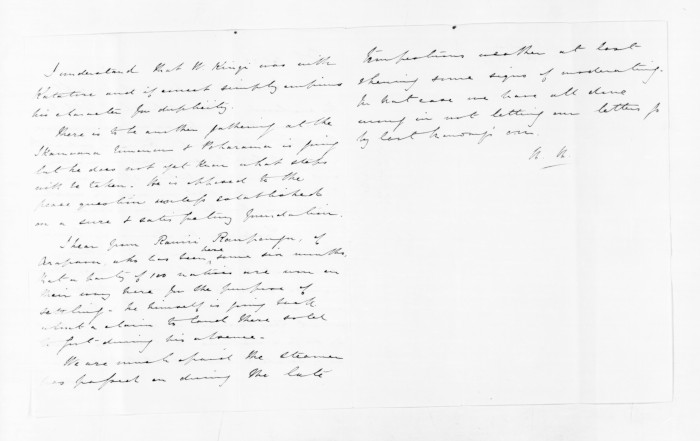 I understand that W. Kingi was with
Katatore and if correct simply confirms
his character for duplicity.
There is to be another gathering at the
& is going
but he does not yet know what steps
will be taken. He is opposed to the
peace question unless established
on a sure & satisfactory foundation.
I hear from Rawiri of
who has been here some six months,
that a party of 100 natives are now on
their way here for the purpose of
settling. he himself is going back
about a claim to land there sold
during his absence.
We are much afraid the steamer
has passed on during the late
Tempestuous weather at last
shewing some signs of moderating.
In that case we have all done
wrong in not letting our letters go
by last